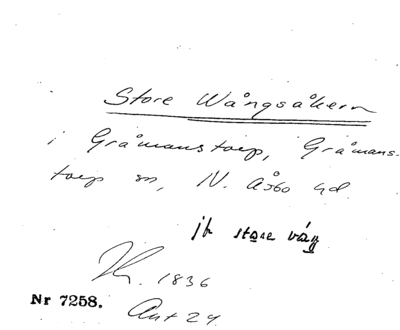 Store Wångsåkern
i Gråmanstorp, Gråmans-
torp sn, N. Åsbo hd.
jfr store våŋ
1836
Nr 7258.
Ant 24